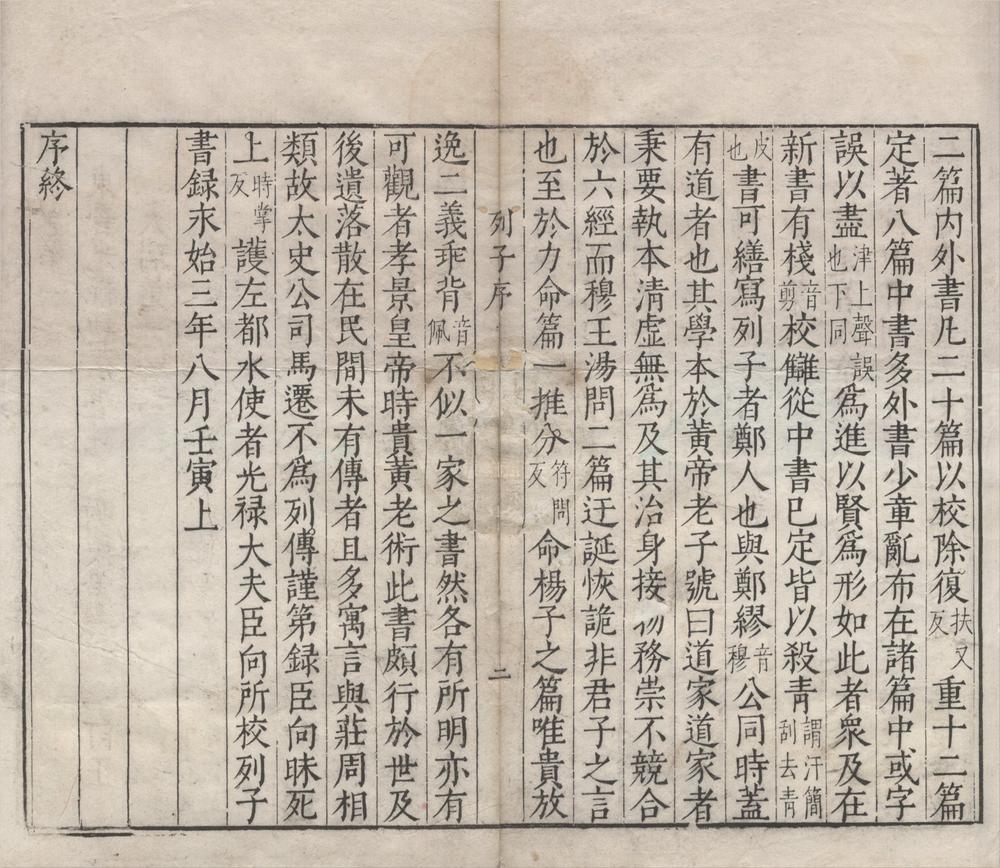 二篇内外書凡二十篇以校除復扶又反重十二篇
定著八篇中書多外書少章亂布在諸篇中或字
誤以盡津上聲誤也下同為進以賢為形如此者衆及在
新書有棧音剪校讎從中書已定皆以殺青謂汗簡刮去青
皮也書可繕寫列子者鄭人也與鄭繆音穆公同時蓋
有道者也其學本於黄帝老子號曰道家道家者
秉要執本清虚無為及其治身接物務崇不競合
於六經而穆王湯問二篇迂誕恢詭非君子之言
也至於力命篇一推分符問反命楊子之篇唯貴放
列子序 二
逸二義乖背音佩不似一家之書然各有所明亦有
可觀者孝景皇帝時貴黄老術此書頗行於世及
後遺落散在民間未有傳者且多寓言與莊周相
類故太史公司馬遷不為列傳謹第録臣向昧死
上時掌反護左都水使者光禄大夫臣向所校列子
書録永始三年八月壬寅上
序終